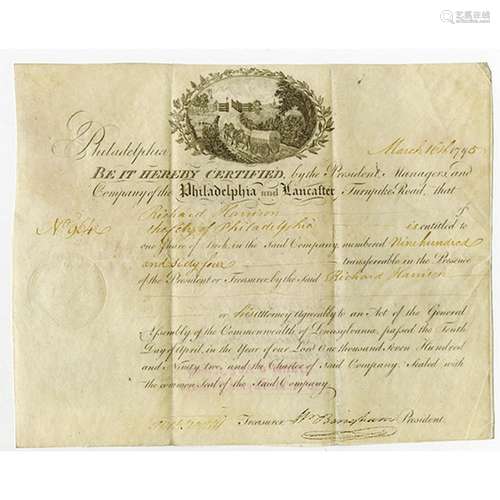 艺典·鉴藏
Philadelphia March 16th 1795
BE IT HEREBY CERTIFIED, by the President Managers and
Company of the Philadelphia and Lancaster Turnpike Road, that
Richard Harrison of
No. 964 the City of Philadelphia is entitled to
one Share of Stock in the Said Company, numbered Nine hundred
and sixty four transferable in the Presence
of the President or Treasurer by the said Richard Harrison
or his Attorney Agreeably to an Act of the General
Assembly of the Commonwealth of Pennsylvania, passed the Tenth
Day of April, in the Year of our Lord One thousand Seven Hundred
and Ninety two, and the Charter of Said Company. Sealed with
the common Seal of the Said Company
Treasurer Wm Bingham President.